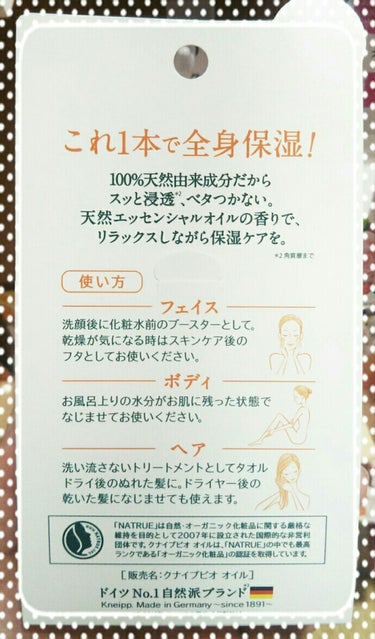 これ1本で全身保湿!
100%天然由来成分だから
スッと浸透*2、ベタつかない。
天然エッセンシャルオイルの香りで、
リラックスしながら保湿ケアを。
*2 角質層まで
使い方
フェイス
洗顔後に化粧水前のブースターとして。
乾燥が気になる時はスキンケア後の
フタとしてお使いください。
ボディ
お風呂上りの水分がお肌に残った状態で
なじませてお使いください。
ヘア
洗い流さないトリートメントとしてタオル
ドライ後のぬれた髪に。ドライヤー後の
乾いた髪になじませても使えます。
「NATRUE」は自然・オーガニック化粧品に関する厳格な
維持を目的として2007年に設立された国際的な非営利
団体です。クナイプビオ オイルは、「NATRUE」の中でも最高
ランクである「オーガニック化粧品」の認証を取得しています。
[販売名:クナイプビオ オイル]
ドイツ No.1 自然派ブランド*3
Kneipp. Made in Germany ~since 1891~